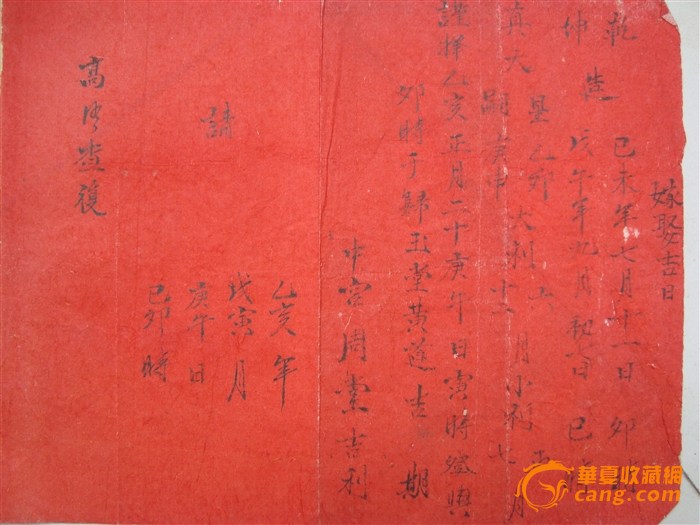 嫁娶吉日
乾 己未年七月廿一日 卯時
造
坤 戊午年九月初七日 巳時
真夫星乙卯 大利六十二月 小利正七月
嗣庚申
謹擇乙亥正月二十庚午日寅時登輿
卯時于歸玉堂黃道吉期
中宮周堂吉利
乙亥年
戊寅月
庚午日
己卯時
請
高 查復
華夏收藏網
cang.com